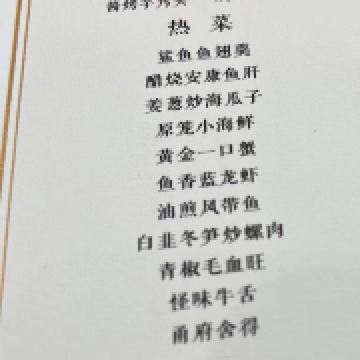 热 菜
鲨鱼鱼翅羹
醋烧安康鱼肝
姜葱炒海瓜子
原笼小海鲜
黄金一口蟹
鱼香蓝龙虾
油煎风带鱼
白韭冬笋炒螺肉
青椒毛血旺
怪味牛舌
甬府舍得